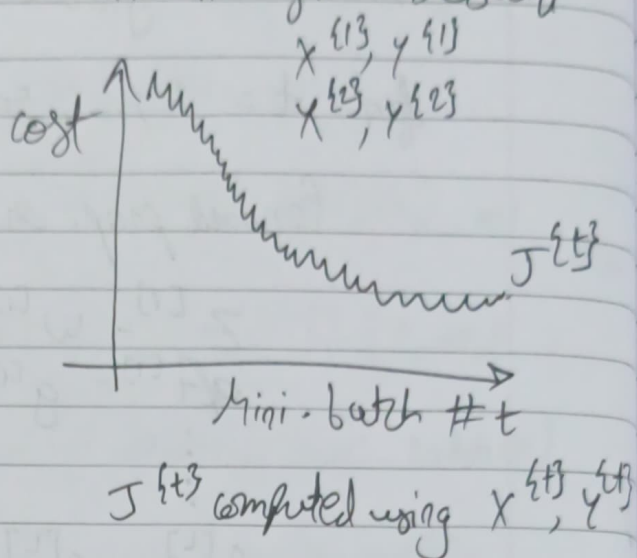 X^{1}, Y^{1}
X^{2}, Y^{2}
cost
J^{t}
Mini-batch # t
J^{t} computed using X^{t}, Y^{t}